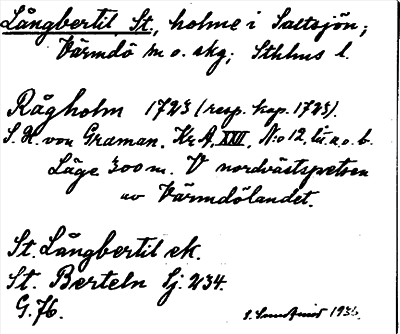 Långbertil St., holme i Saltsjön;
Värmdö m o. skg; Sthlms l.
Rågholm 1723 (resp. kop. 1723).
S. H. von Graman. Kr A, XXII, N:o 12, o. b.
Läge 300 m. V nordvästspetsen
av Värmdölandet.
St. Långbertil ek.
St. Berteln Sj. 234.
G. 76.
1936